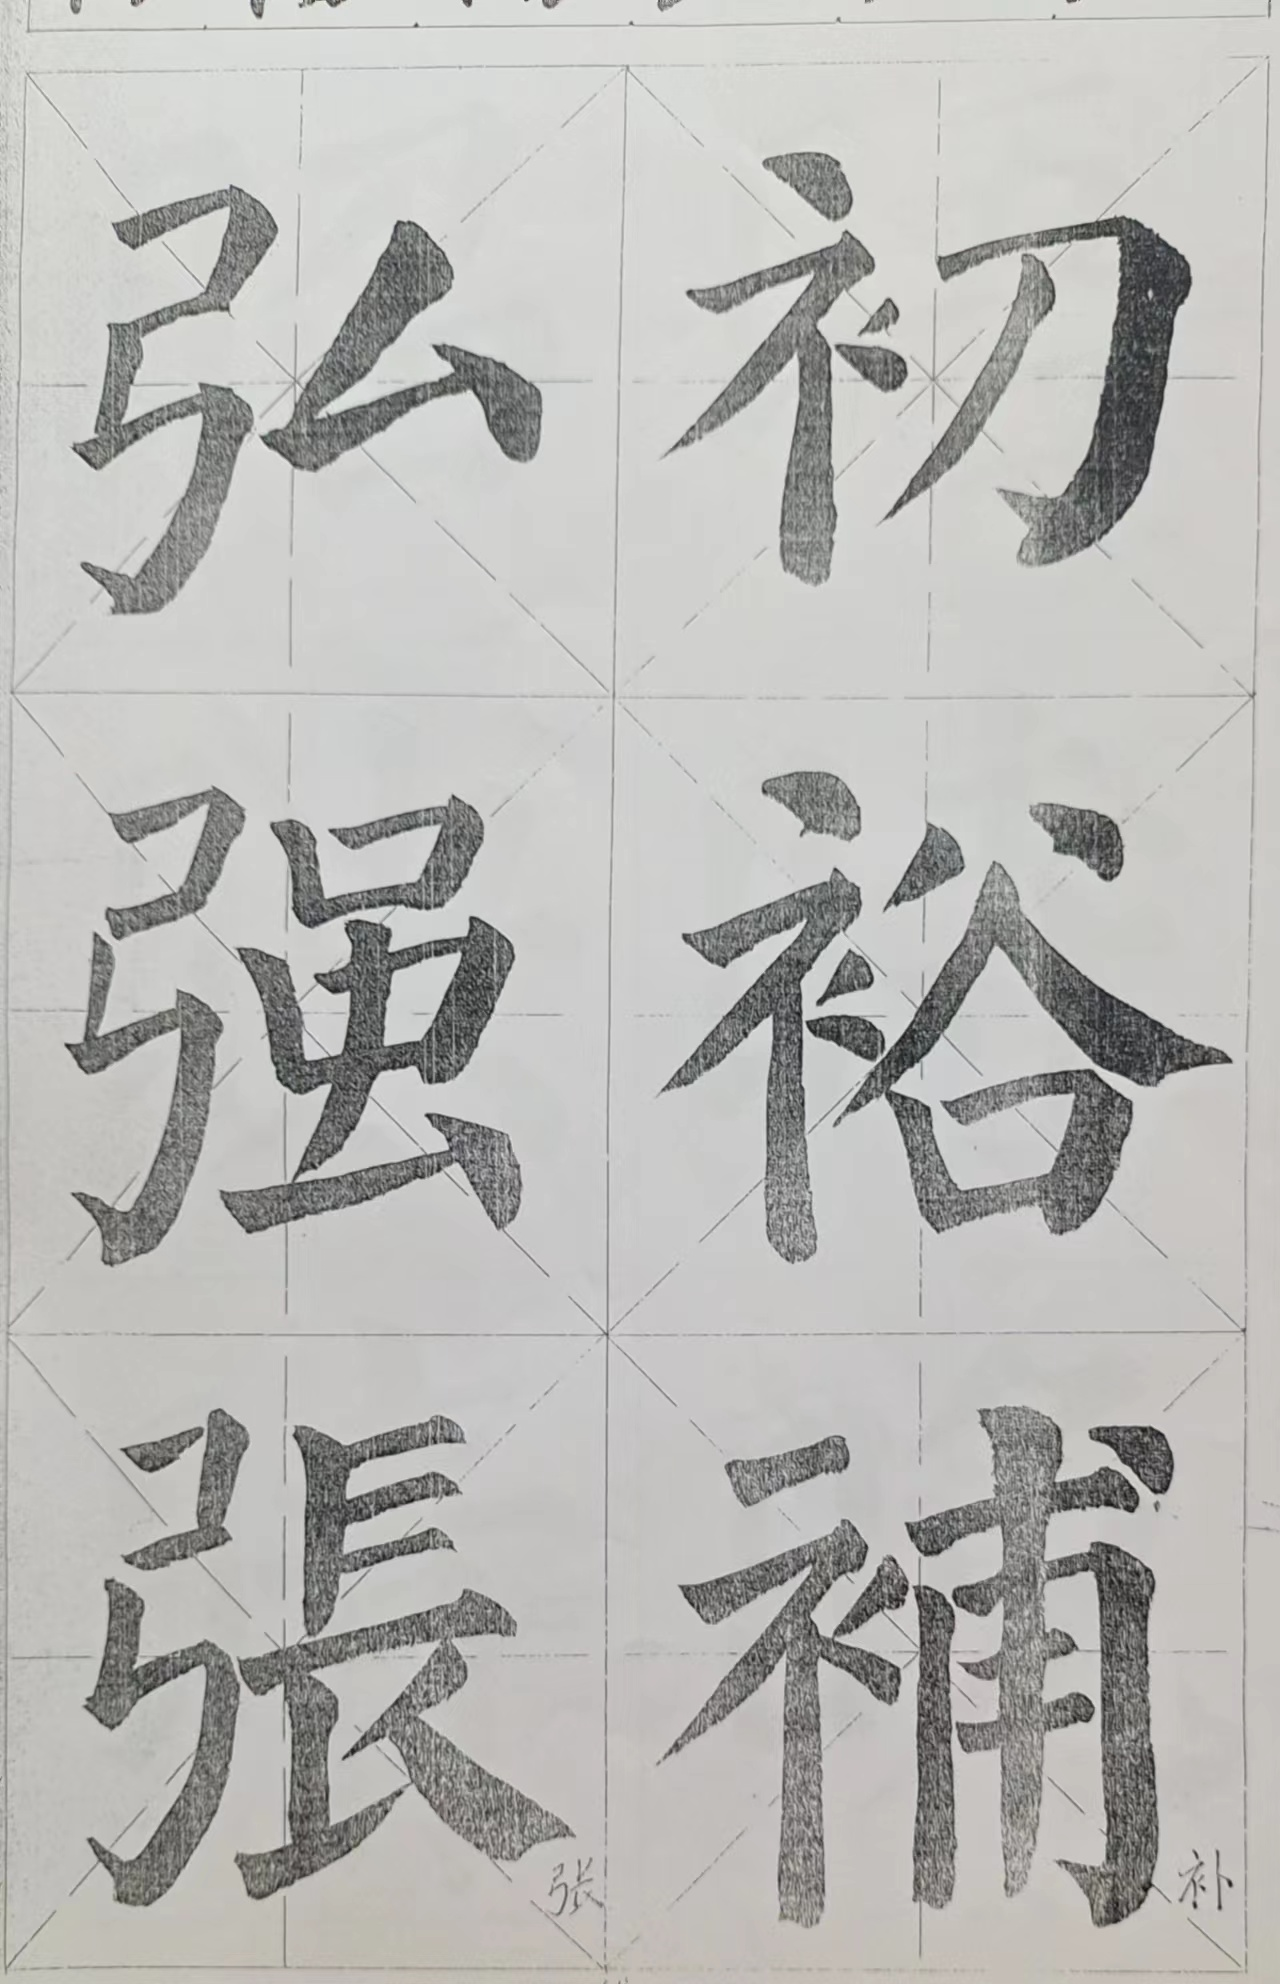 初裕補
补
弘强張
张